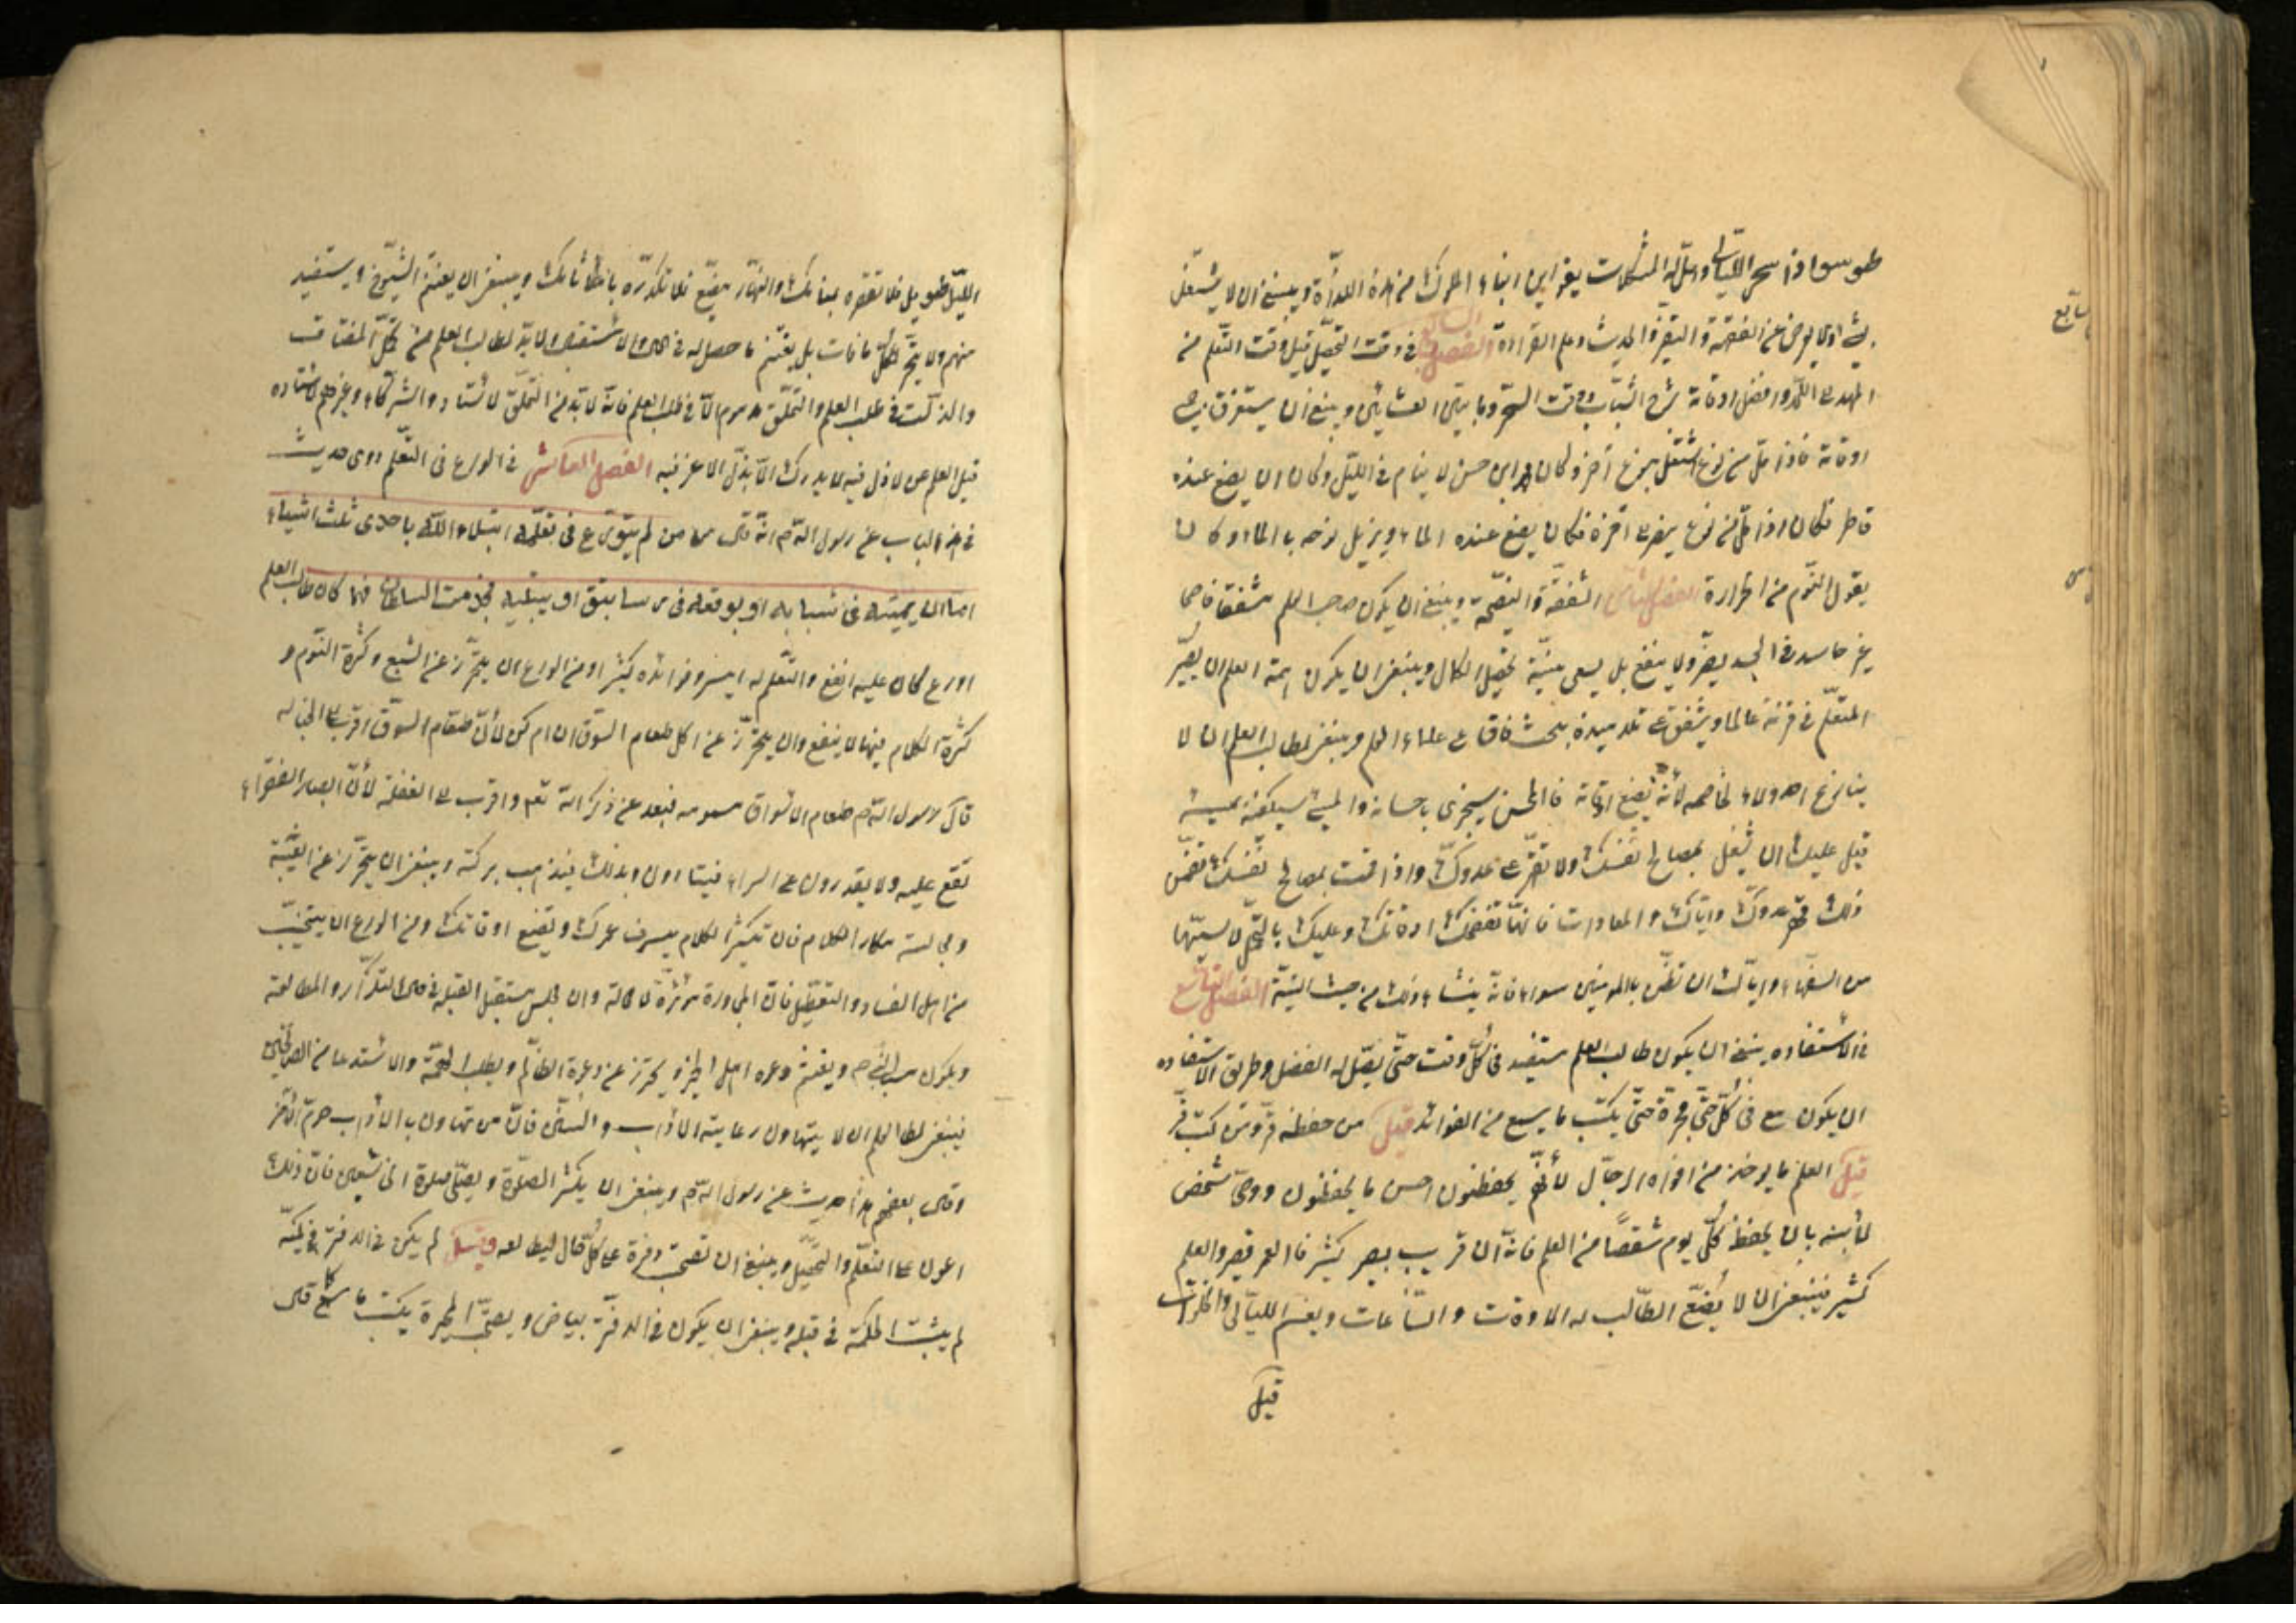 طوسي اذا سهر الليالي وحل له المشكلات يقول اين ابناء الملوك من هذه اللذة وينبغي ان لا يشتغل
بشئ اخر ولا يعرض عن الفقه والتفسير والحديث وعلم القراءة الفصل السابع في وقت التحصيل قيل وقت التعلم من
المهد الى اللحد وافضل اوقاته شرخ الشباب ووقت السحر وما بين العشائين وينبغي ان يستغرق جميع
اوقاته فاذا مل من نوع اشتغل بنوع آخر وكان محمد بن حسن لا ينام في الليل وكان يضع عنده
دفاتر فكان اذا مل من نوع ينظر الى آخر وكان يضع عنده الماء ويزيل نومه بالماء وكان
يقول النوم من الحرارة الفصل الثامن الشفقة والنصيحة وينبغي ان يكون صاحب العلم مشفقا ناصحا
غير حاسد فالحسد يضر ولا ينفع بل يسعى بنية تحصيل الكمال وينبغي ان يكون همة المعلم ان يصير
المتعلم في قرنه عالما ويشفق على تلاميذه بحيث فاق على علماء العالم وينبغي لطالب العلم ان لا
ينازع احدا ولا يخاصمه لأنه يضيع اوقاته فالمحسن سيجزى باحسانه والمسئ سيكفيه مسيئه
قيل عليك ان تشغل بمصالح نفسك ولا تقهر على عدوك واذا قمت بمصالح نفسك تضمن
ذلك قهر عدوك واياك والمعادات فانها تفضحك وتضيع اوقاتك وعليك بالتحمل لا سيما
من السفهاء واياك ان تظن بالمؤمنين سوء فانه ينشاء ذلك من خبث النية الفصل التاسع
في الأستفادة ينبغي ان يكون طالب العلم مستفيد في كل وقت حتى يحصل له الفضل وطريق الاستفاده
ان يكون معه في كل وقت محبرة حتى يكتب ما يسمع من الفوائد قيل من حفظ فر ومن كتب قر
قيل العلم ما يوخذ من افواه الرجال لأنهم يحفظون احسن ما يحفظون ووصى شخص
لأبنه بان يحفظ كل يوم شقصا من العلم فانه ان قريب يصير كثيرا فالعمر قصير والعلم
كثير فينبغي ان لا يضيع الطالب له الاوقات والساعات ويغتنم الليالي والخلوات
قيل
سابع
الليل طويل فلا تقصره بمنامك والنهار مضئ فلا تكدره بآثامك وينبغي ان يغتنم الشيوخ ويستفيد
منهم ولا يتحسر لكل ما فات بل يغتنم ما حصل له في الحال والاستقبال ولا بد لطالب العلم من تحمل المشقات
والمذلة في طلب العلم والتملق مذموم الا في طلب العلم فانه لا بد من التملق لأستاد والشركاء وغيرهم للاستفاده
قيل العلم عز لا ذل فيه لا يدرك الا بذل لا عز فيه الفصل العاشر في الورع في التعلم روى حديث
في هذا الباب عن رسول الله ص انه قال من لم يتورع في تعلمه ابتلاه الله باحدى ثلث اشياء
اما ان يميته في شبابه او يوقعه في رساتيق او يبتليه بخدمت السلطان فهما كان طالب العلم
اورع كان علمه انفع والتعلم له ايسر وفوائده كثيرا ومن الورع ان يتحرز عن الشبع وكثرة النوم و
كثرة الكلام فيما لا ينفع وان يتحرز عن اكل طعام السوق ان امكن لأن طعام السوق اقرب الى الخباثه
قال رسول الله ص طعام الاسواق مسموم فيبعد عن ذكر الله تعا واقرب الى الغفلة لأن ابصار الفقراء
تقع عليه ولا يقدرون على الشراء فيتاذون وبذلك فيذهب بركته وينبغي ان يتحرز عن الغيبة
ومجالسة مكثار الكلام فان مكثر الكلام يسرف عمرك ويضيع اوقاتك ومن الورع ان يتجنب
من اهل الفساد والتعطيل فان المجاورة مؤثرة لا محالة وان يجلس مستقبل القبلة في حال التكرار والمطالعة
ويكون بسنة النبي ص ويغتنم دعوة اهل الخير ويحترز عن دعوة المظلوم ويطلب الهمة والاستدعا من الصالحين
فينبغي لطالب العلم ان لا يتهاون رعاية الاداب والسنن فان من تهاون بالاداب حرم السنن
وقال بعضهم هذا حديث عن رسول الله ص وينبغي ان يكثر الصلوة ويصلي صلوة الخاشعين فان ذلك
اعون على التعلم والتحصيل وينبغي ان يصحب دفترة على كل حال ليطالعه وقيل من لم يكن في الدفتر في كمه
لم يثبت الحكمة في قلبه وينبغي ان يكون في الدفتر بياض ويصحب المحبرة يكتب ما سمع كما قال